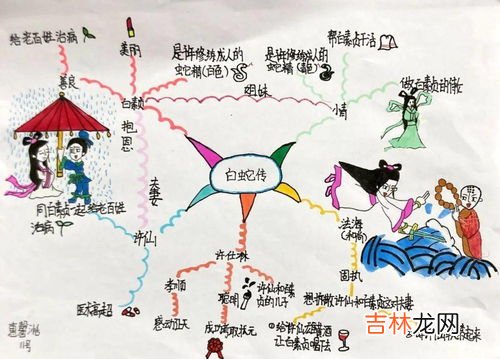 给老百姓治病
善良
美丽
白素贞
是许修练成人的
蛇精(白色)
是许修练成人的
蛇精(青色)
帮白素贞干活
做白素贞的侍女
姐妹
小青
报恩
夫妻
白蛇传
同白素贞一起给老百姓
治病
许仙
医术高超
许仕林
孝顺
感动上天
聪明
成功考取状元
许仙和白素
贞的儿子
法海
(和尚)
固执
想拆散许仙和白素贞这对夫妻
给许仙雄黄酒
让白素贞喝下
11号
吉林龙网